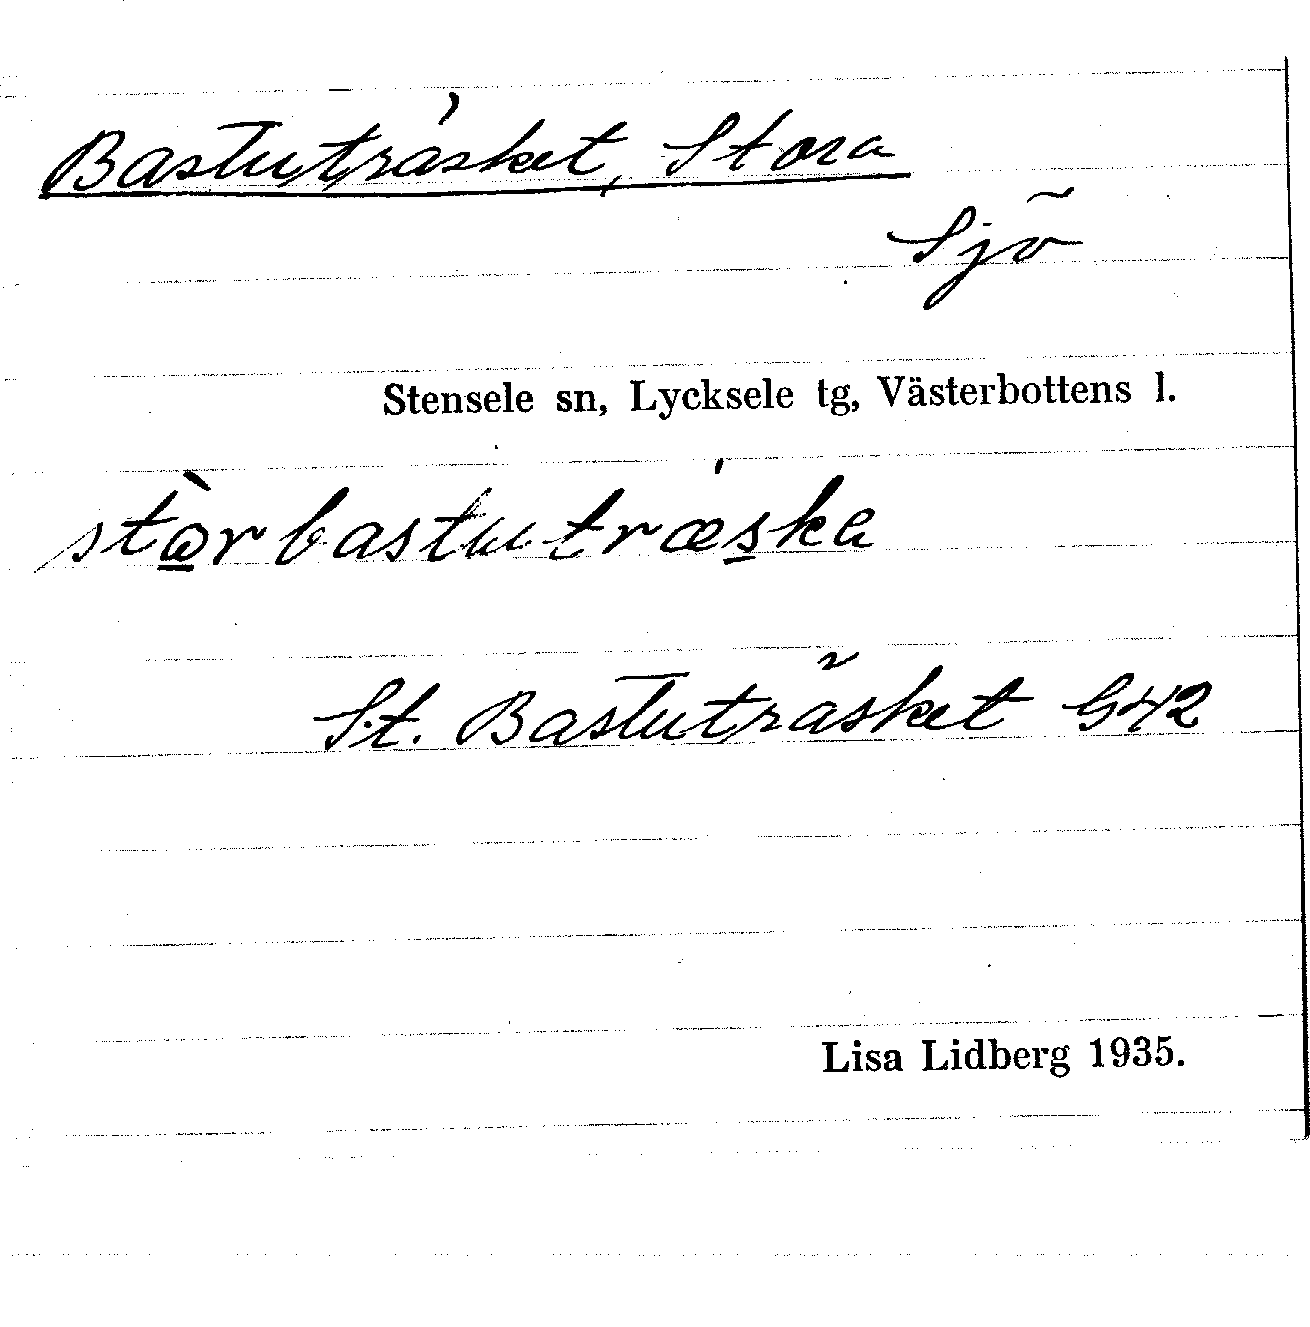 Bastuträsket, Stora
Sjö
Stensele sn, Lycksele tg, Västerbottens l.
stòrbastutræ´ska
St. Bastuträsket G42
Lisa Lidberg 1935.